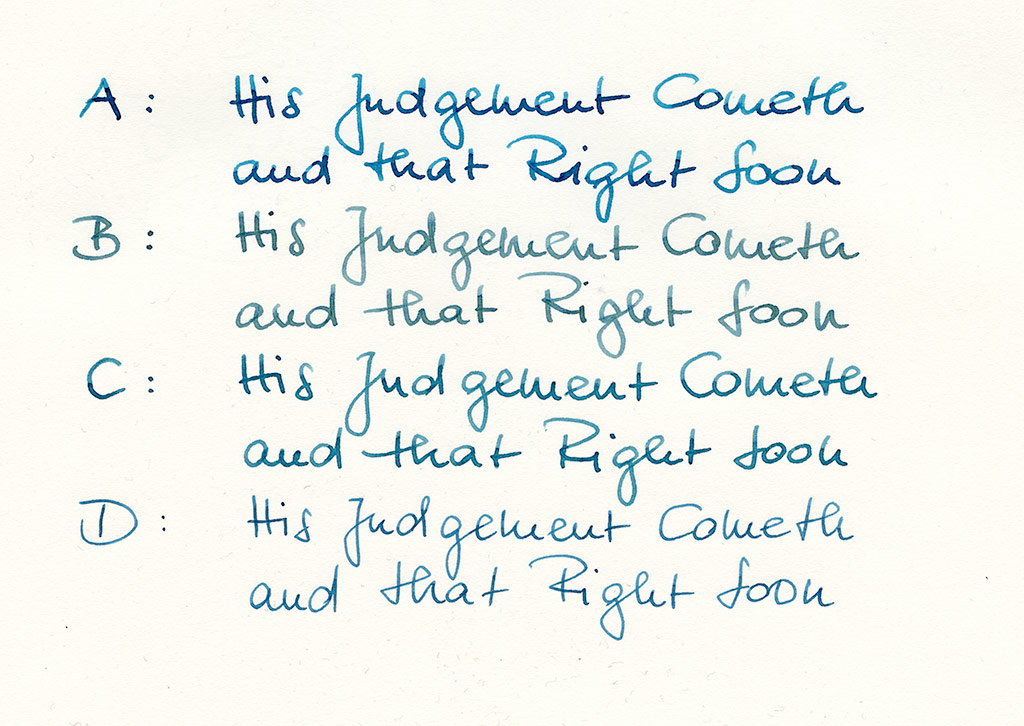 A: His Judgement Cometh
and that Right Soon
B: His Judgement Cometh
and that Right Soon
C: His Judgement Cometh
and that Right Soon
D: His Judgement Cometh
and that Right Soon